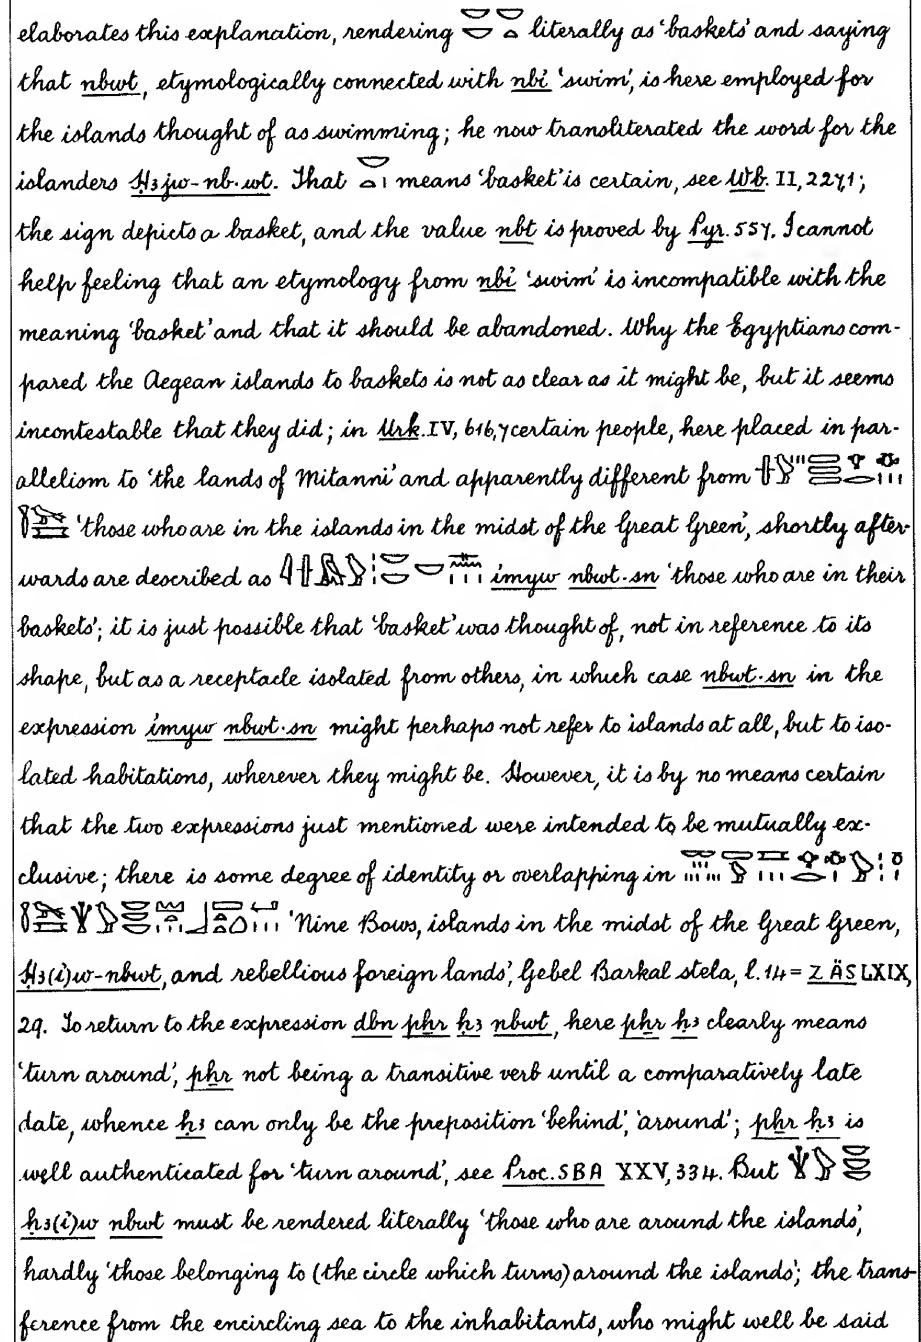 elaborates this explanation, rendering literally as 'baskets' and saying
that nbwt, etymologically connected with nbi 'swim', is here employed for
the islands thought of as swimming; he now transliterated the word for the
islanders Ḥ3jw-nb.wt. That means 'basket' is certain, see Wb. II, 227,1;
the sign depicts a basket, and the value nbt is proved by Pyr. 557. I cannot
help feeling that an etymology from nbi 'swim' is incompatible with the
meaning 'basket' and that it should be abandoned. Why the Egyptians com-
pared the Aegean islands to baskets is not as clear as it might be, but it seems
incontestable that they did; in Urk. IV, 616,7 certain people, here placed in par-
allelism to 'the lands of Mitanni' and apparently different from
'those who are in the islands in the midst of the Great Green', shortly after-
wards are described as imyw nbwt.sn 'those who are in their
baskets'; it is just possible that 'basket' was thought of, not in reference to its
shape, but as a receptacle isolated from others, in which case nbwt.sn in the
expression imyw nbwt.sn might perhaps not refer to islands at all, but to iso-
lated habitations, wherever they might be. However, it is by no means certain
that the two expressions just mentioned were intended to be mutually ex-
clusive; there is some degree of identity or overlapping in
'Nine Bows, islands in the midst of the Great Green,
Ḥ3(i)w-nbwt, and rebellious foreign lands', Gebel Barkal stela, l. 14 = ZÄS LXIX,
29. To return to the expression dbn pẖr ḥ3 nbwt, here pẖr ḥ3 clearly means
'turn around', pẖr not being a transitive verb until a comparatively late
date, whence ḥ3 can only be the preposition 'behind', 'around'; pẖr ḥ3 is
well authenticated for 'turn around', see Proc. SBA XXV, 334. But
ḥ3(i)w nbwt must be rendered literally 'those who are around the islands',
hardly 'those belonging to (the circle which turns) around the islands'; the trans-
ference from the encircling sea to the inhabitants, who might well be said